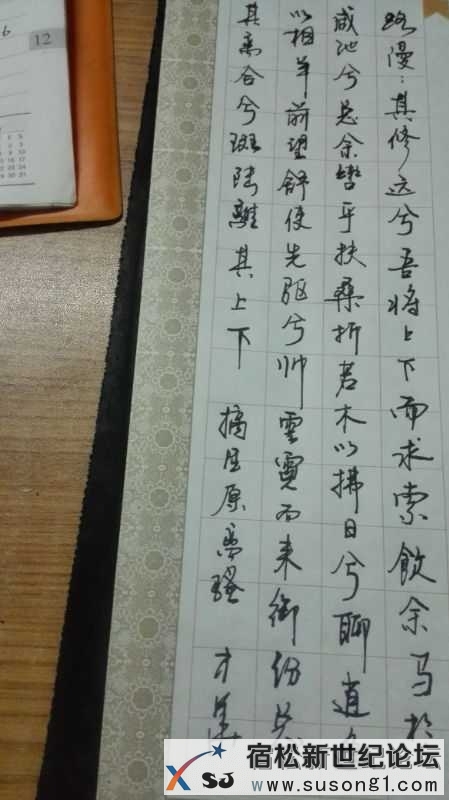 路漫:其修远兮吾将上下而求索飲余马於
咸池兮总余辔乎扶桑折若木以拂日兮聊逍
以相羊前望舒使先驱兮帅雲霓而来御纷总
其离合兮斑陆離其上下 摘屈原离骚
6
12
XSJ
宿松新世纪论坛
www.susong1.com